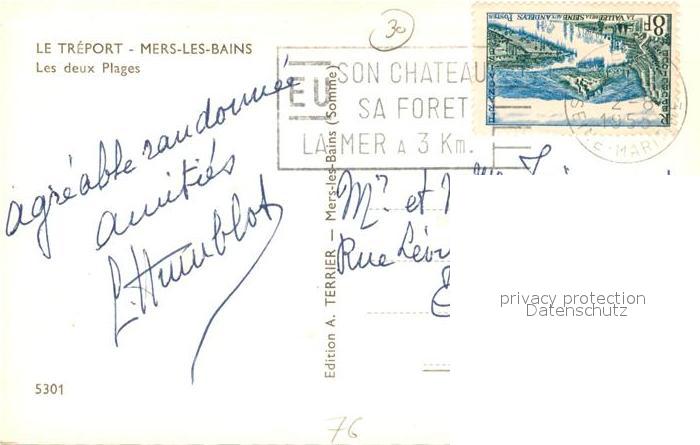 LE TRÉPORT - MERS-LES-BAINS
Les deux Plages
30
EU
SON CHATEAU
SA FORET
LA MER A 3 Km.
8F
LA VALLÉE DE LA SEINE AUX ANDELYS
POSTES
SEINE-MARITIME
agréable randonnée
amitiés
L. Humblot
Edition A. TERRIER — Mers-les-Bains (Somme)
Mr. et
Rue
privacy protection
Datenschutz
5301
76